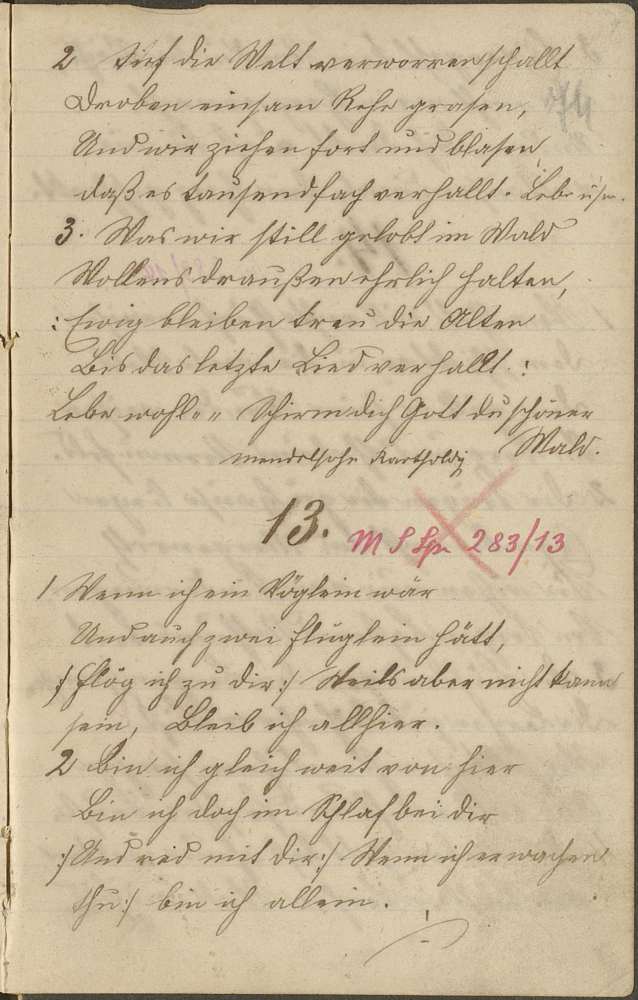 2 Tief die Welt verworren schallt
74
Droben einsam Rehe grasen,
Und wir ziehen fort und blasen
daß es tausendfach verhallt. Lebe usw.
3. Was wir still gelobt im Wald
Wollens draußen ehrlich halten,
: Ewig bleiben treu die Alten
Bis das letzte Lied verhallt :
Lebe wohl " " Schirm dich Gott du schöner
Wald.
Mendelsohn Bartholdy
13.
M S Lpr 283/13
1 Wenn ich ein Vöglein wär
Und auch zwei Fluglein hätt,
:/ Flög ich zu dir :/ Weils aber nicht kann
sein, Bleib ich allhier.
2 Bin ich gleich weit von hier
Bin ich doch im Schlaf bei dir
:/ Und red mit dir :/ Wenn ich erwachen
thu :/ bin ich allein.